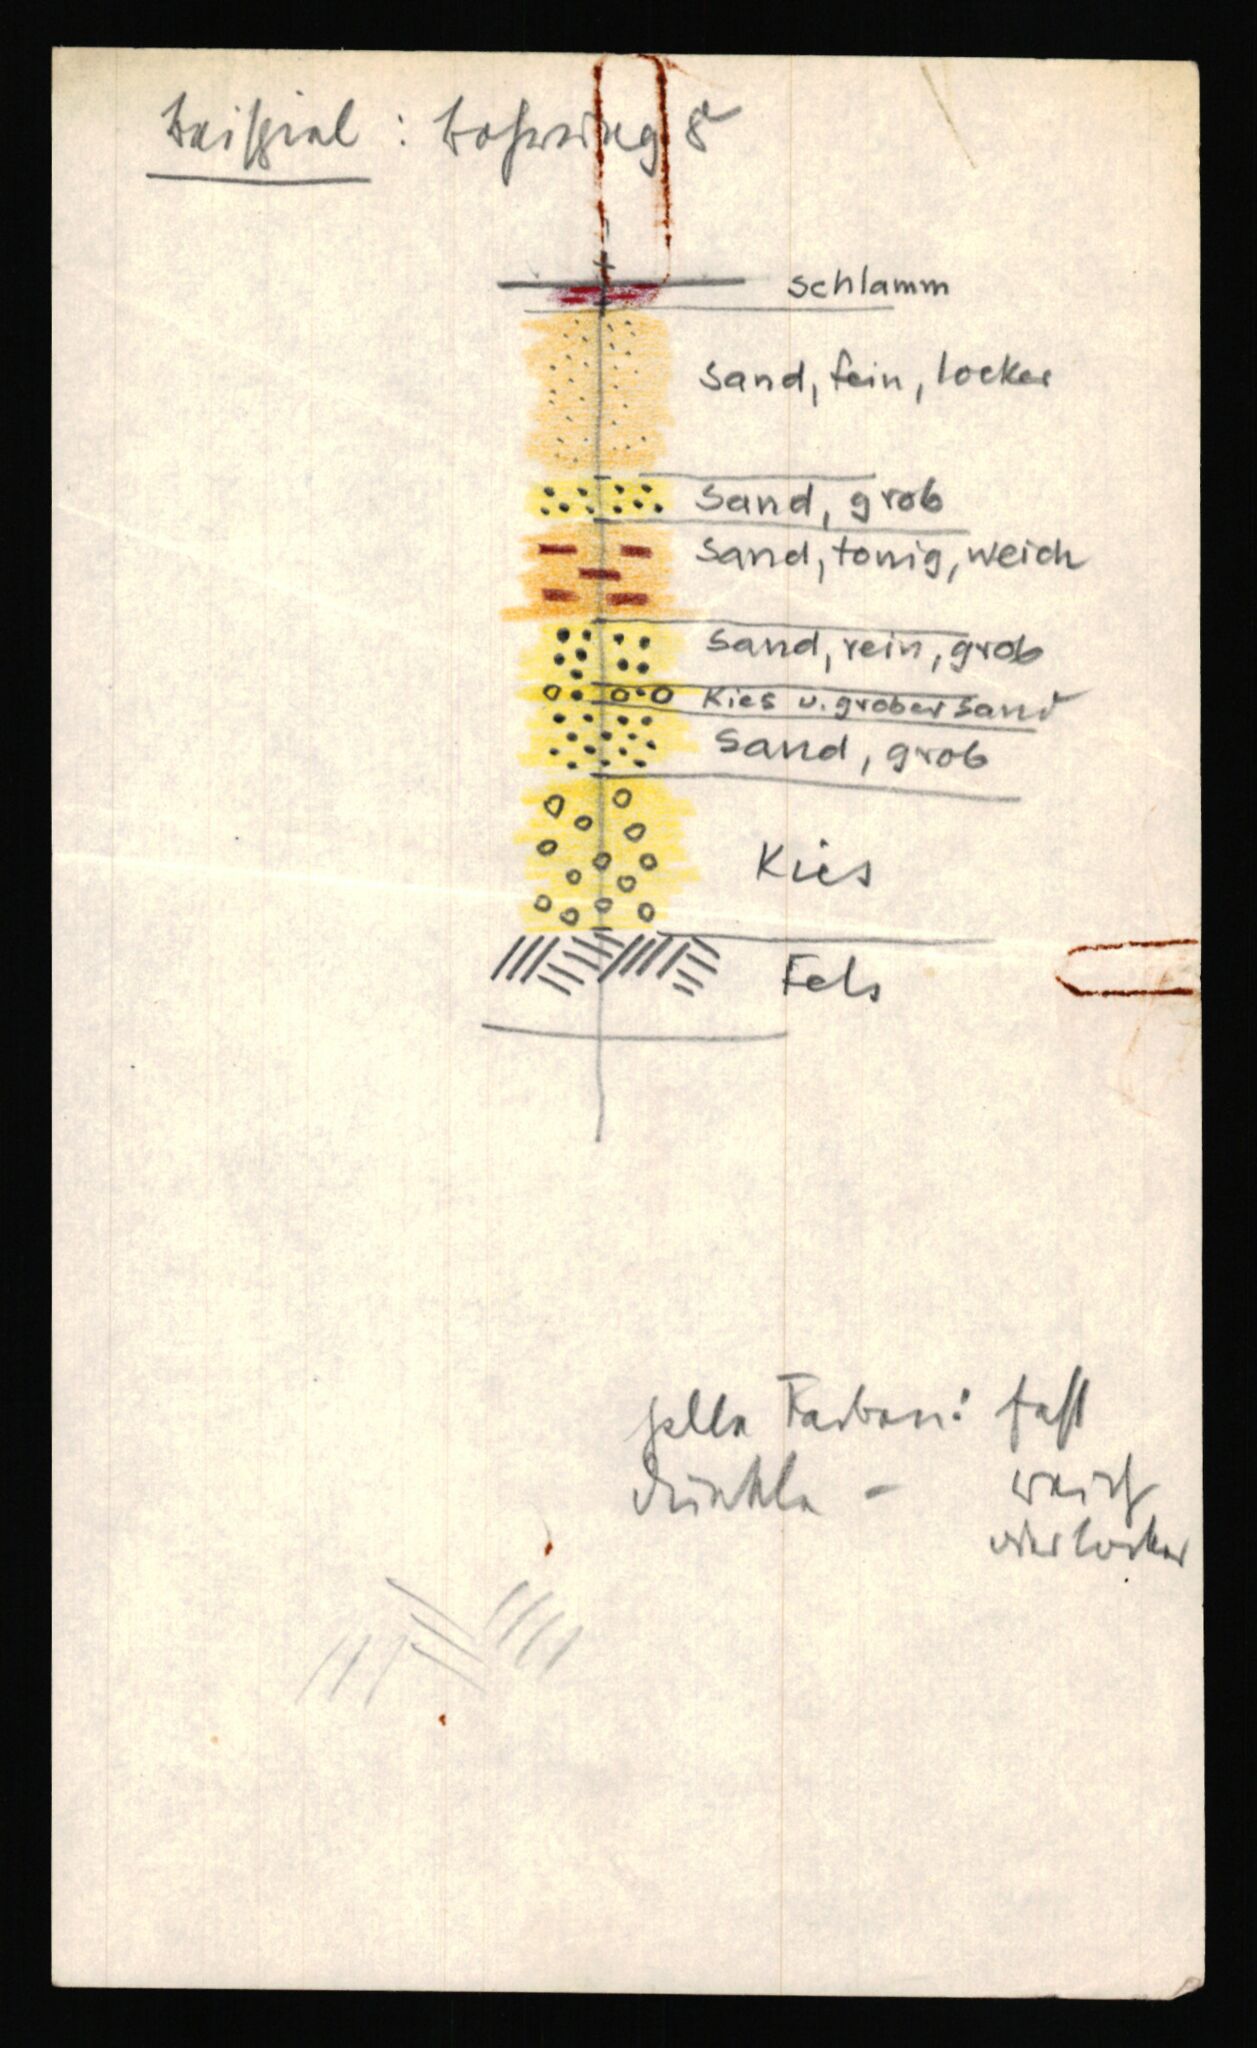 Beispiel: Bohrung 8
Schlamm
Sand, fein, locker
Sand, grob
Sand, tonig, weich
Sand, rein, grob
Kies u. grober Sand
Sand, grob
Kies
Fels
helle Farben: fest
dunkle - weich
oder locker